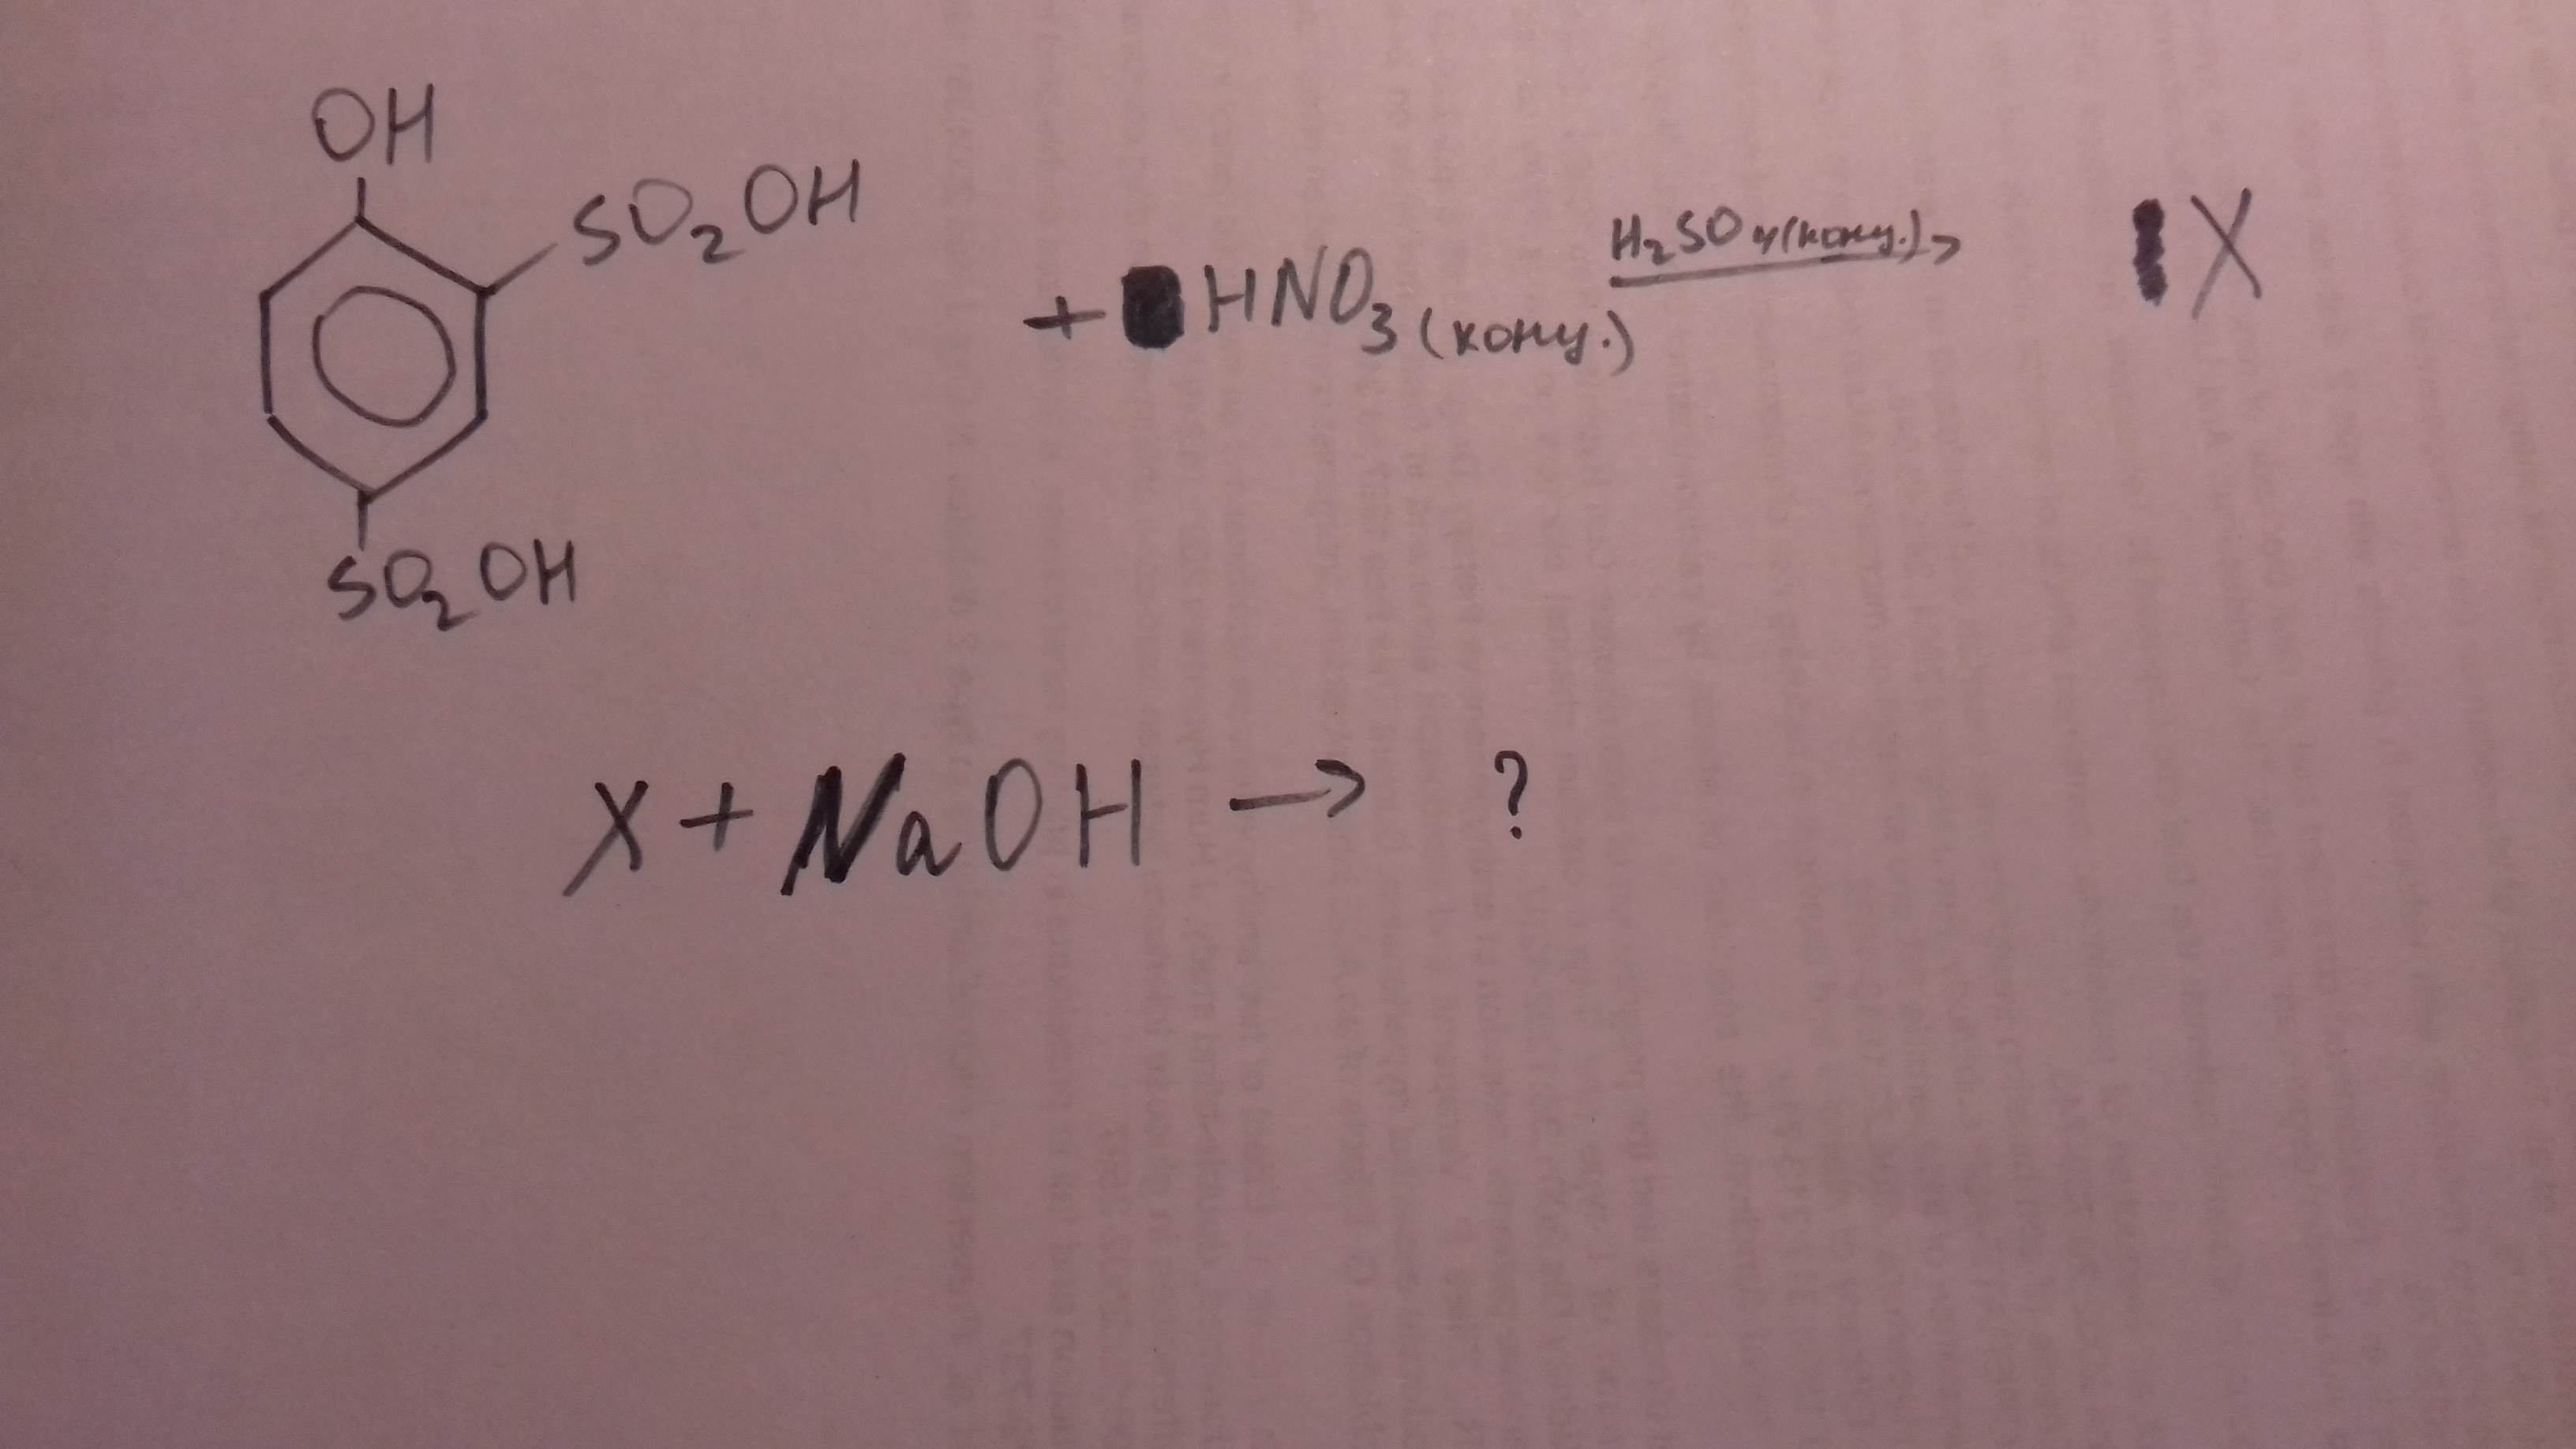 OH
SO2OH
SO2OH
+ HNO3 (конц.)
H2SO4 (конц.)
X
X + NaOH → ?